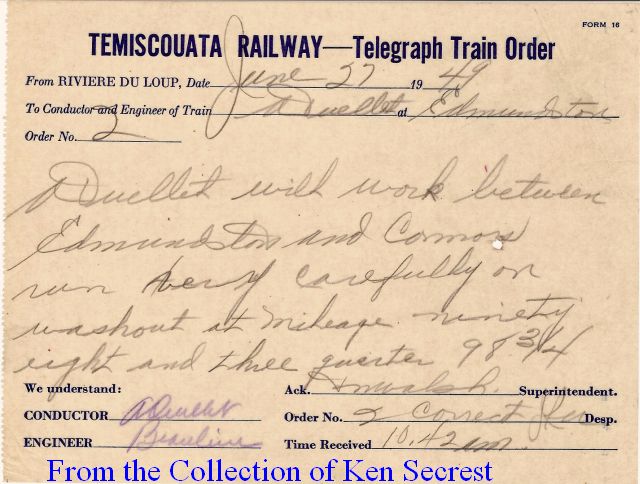 FORM 16
TEMISCOUATA RAILWAY—Telegraph Train Order
From RIVIERE DU LOUP, Date June 27 1949
To Conductor and Engineer of Train A Ouellet at Edmundston
Order No. 2
A Ouellet will work between
Edmundston and Connors
run very carefully on
washout at mileage ninety
eight and three quarter 98 3/4
We understand: Ack. Superintendent.
CONDUCTOR A Ouellet Order No. 2 Correct Desp.
ENGINEER Beaulieu Time Received 10.42 am.
From the Collection of Ken Secrest